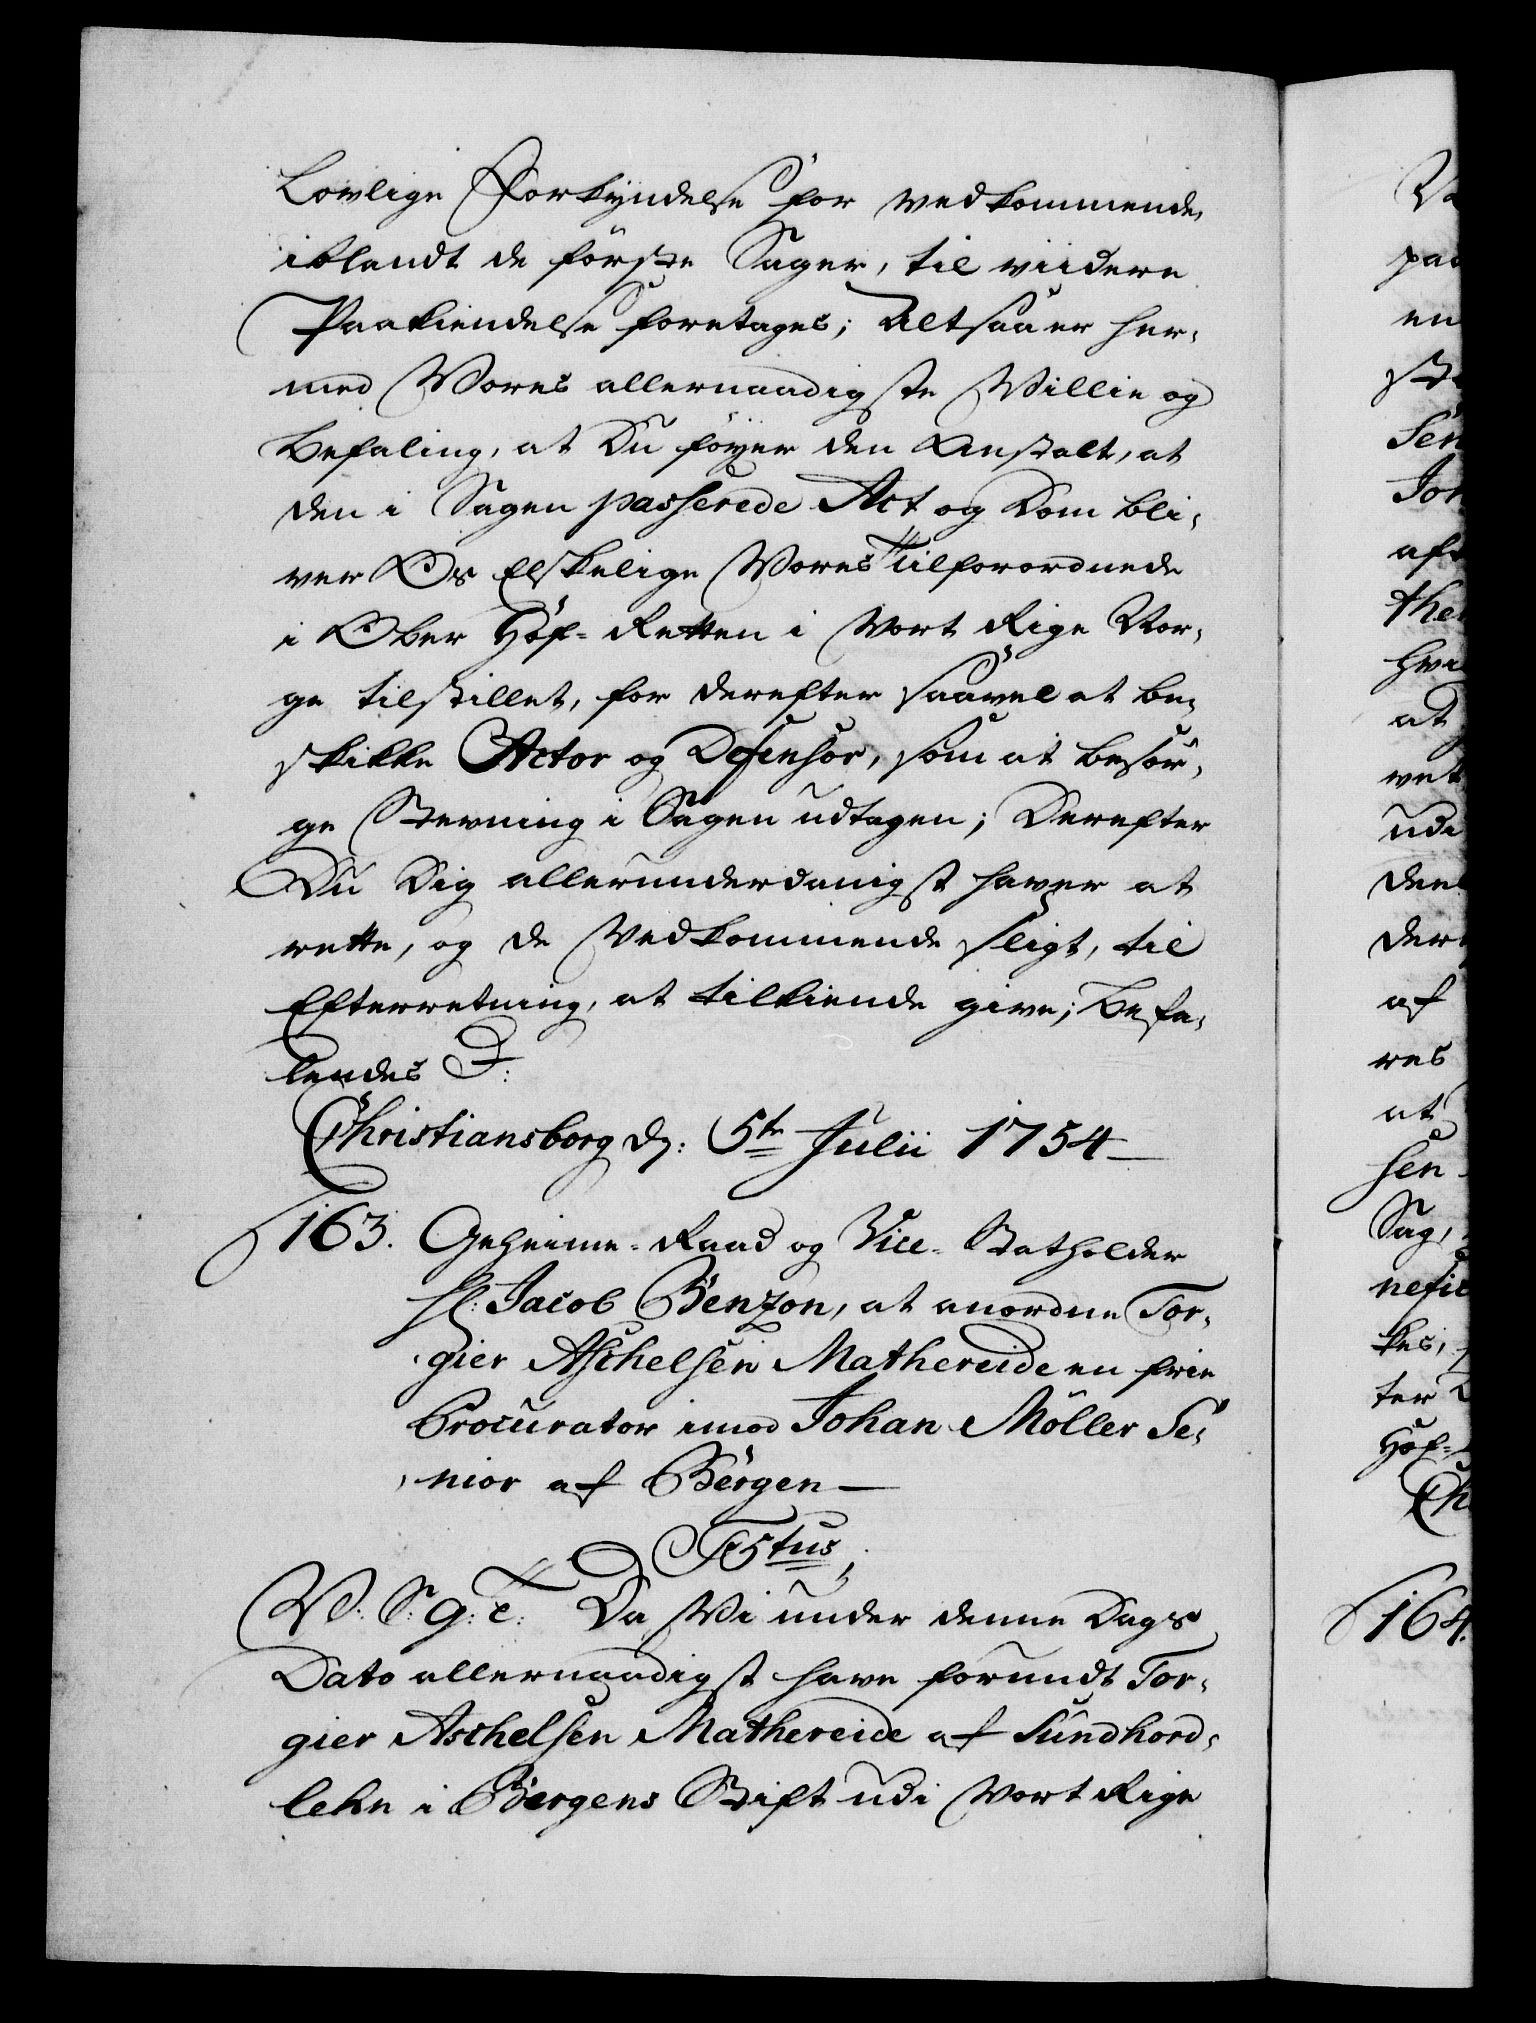 Lovlige Forkyndelse for vedkommende,
iblandt de förste Sager, til viidere
Paakiendelse foretages; Altsaa er her-
med Vores allernaadigste Villie og
Befaling, at Du föyer den Anstalt, at
den i Sagen passerede Act og Dom bli-
ver Os Elskelige Vores Tilforordnede
i Ober Hof-Retten i Vort Rige Nor-
ge tilstillet, for derefter saavel at be-
skikke Actor og Defensor, som at besör-
ge Stevning i Sagen udtagen; Derefter
Du Dig allerunderdanigst haver at
rette, og de Vedkommende sligt, til
Efterretning, at tilkiende give; Befa-
lendes D:
Christiansborg d: 5te Julii 1754
163. Geheime-Raad og Vice-Statholder
Hr: Jacob Benzon, at anordne Tor-
gier Aschelsen Mathereide en frie
Procurator imod Johan Möller Se-
nior af Bergen
Festus,
V. S. G. T. Da Vi under denne Dags
Dato allernaadigst have forundt Tor-
gier Aschelsen Mathereide af Sundhord-
lehn i Bergens Stift udi Vort Rige
164.